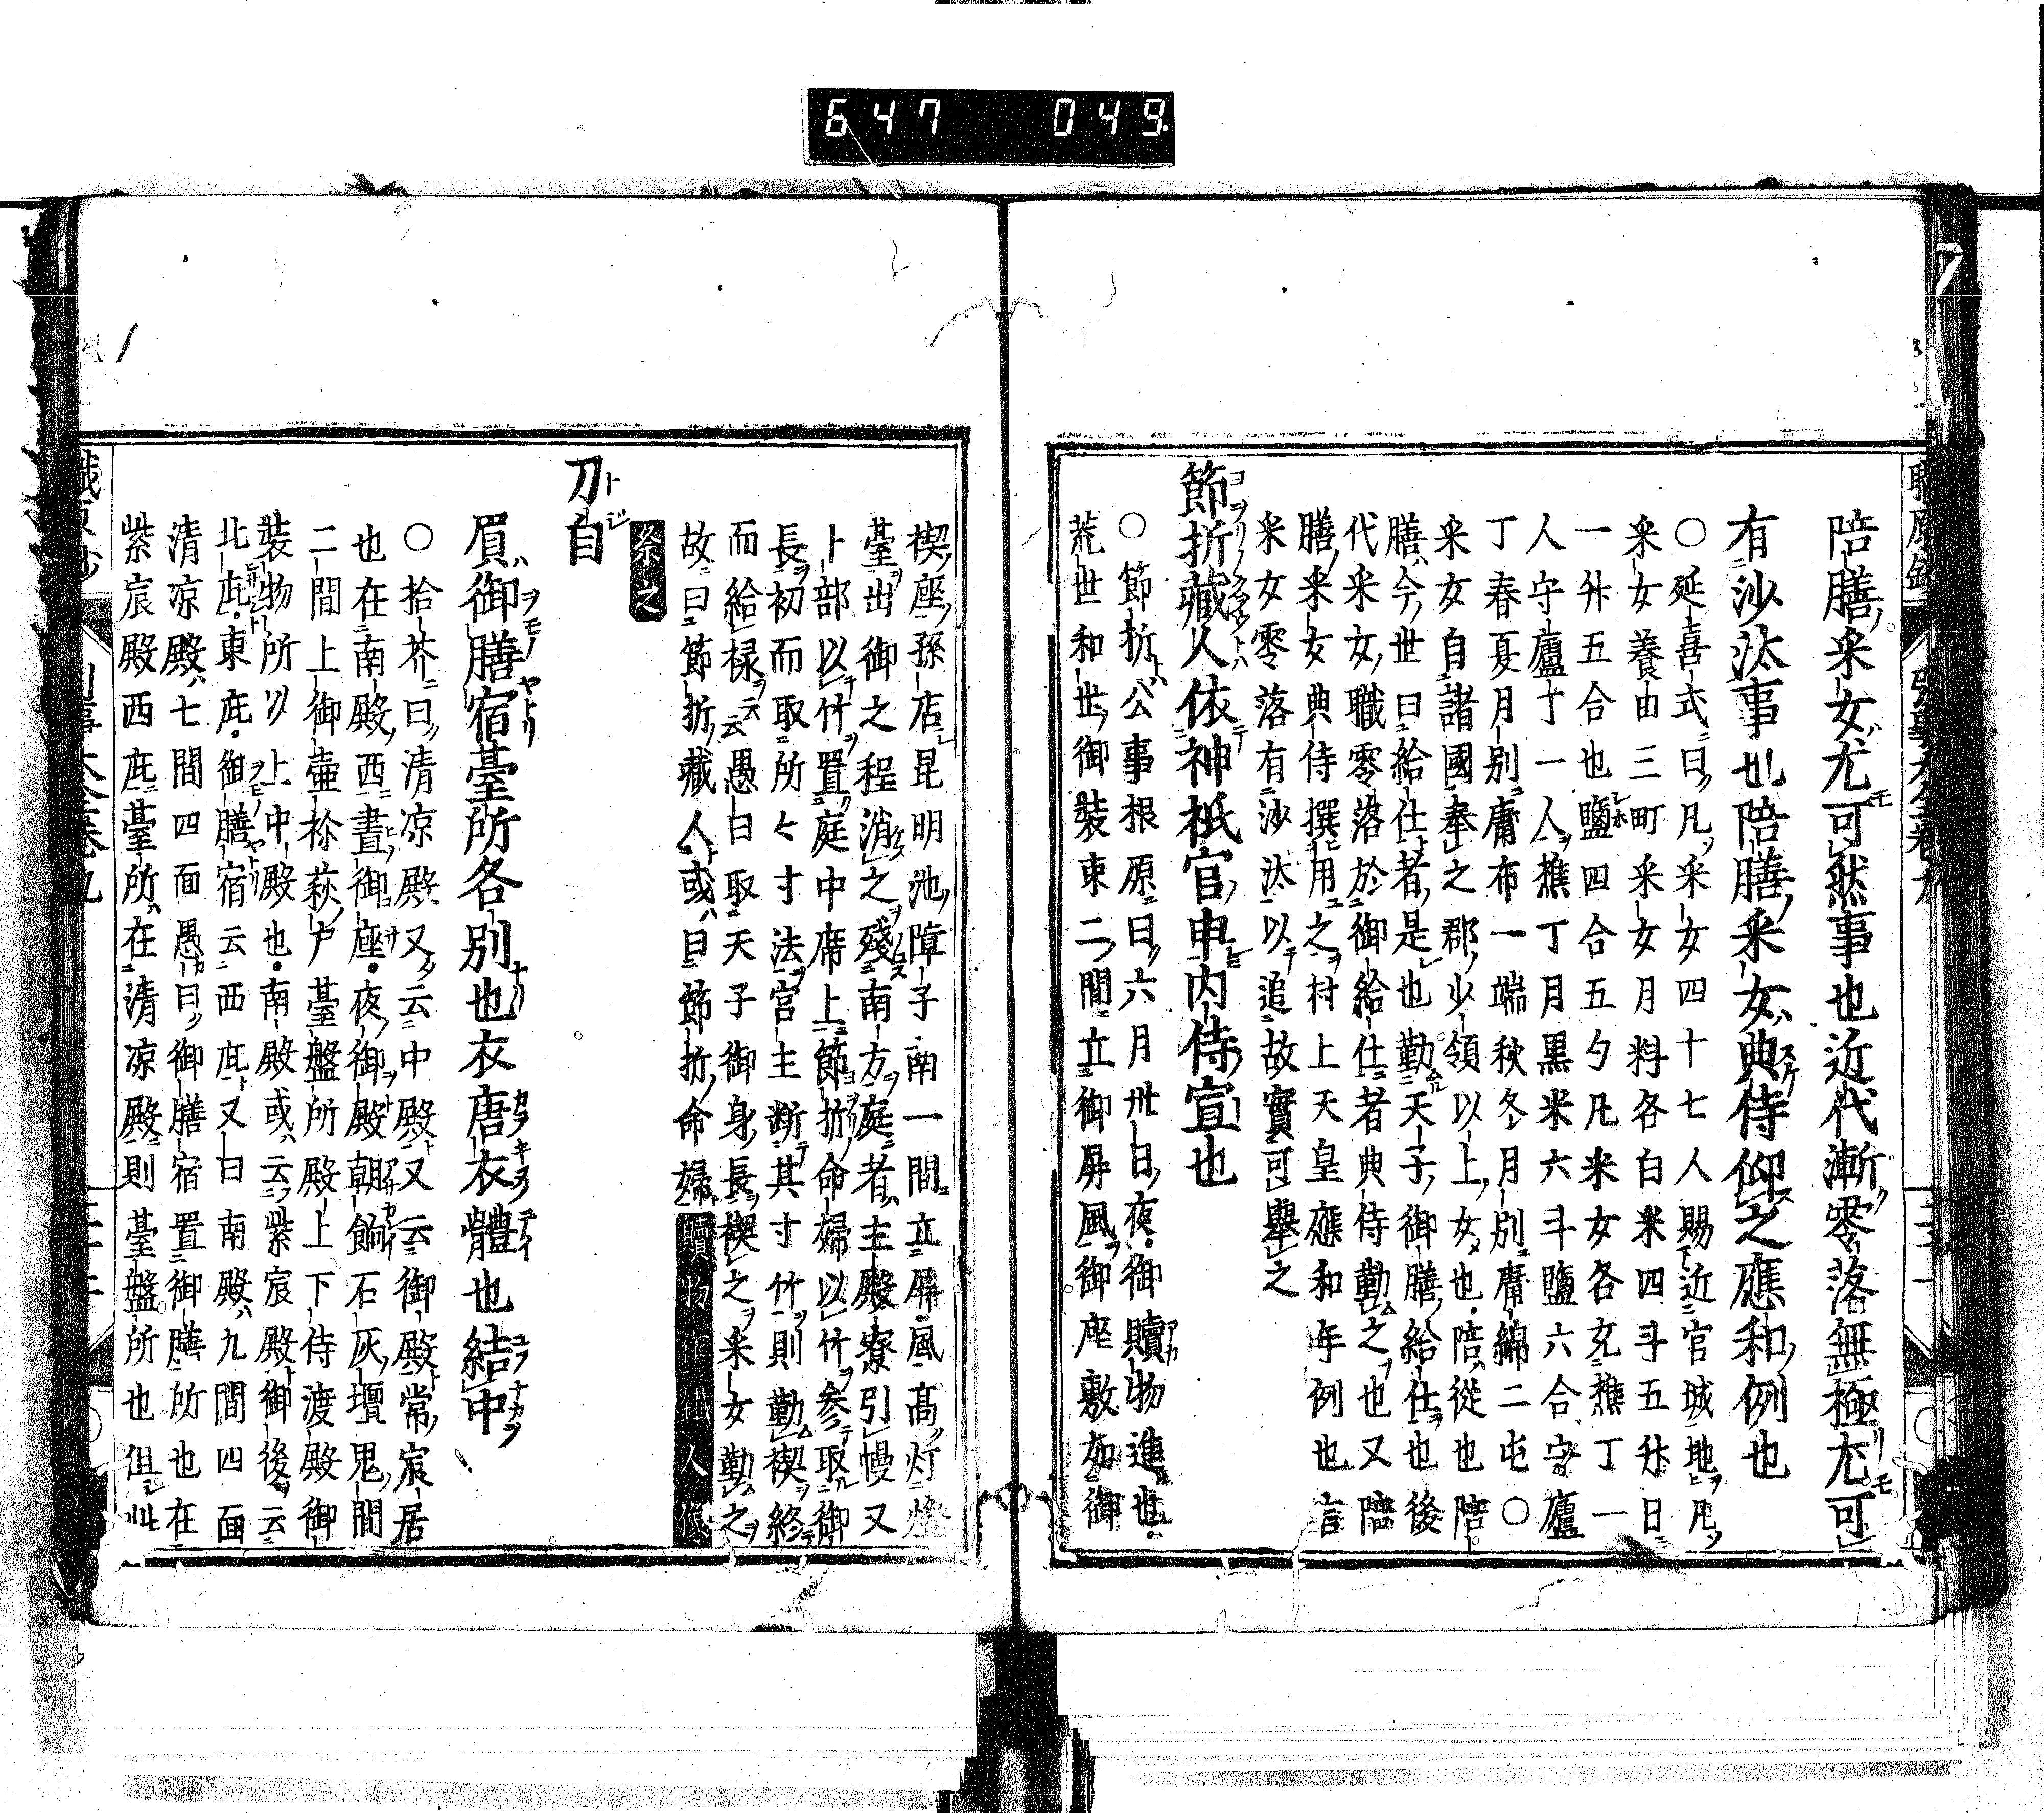 647 049
陪膳采女尤可然事也近代漸零落無極尤可
有沙汰事也陪膳采女典侍仰之應和例也
○延喜式曰凡采女四十七人賜近官城地凡
采女養由三町采女月料各白米四斗五升日
一舛五合也鹽四合五勺凡米女各充樵丁一
人守廬丁一人樵丁月黒米六斗鹽六合守廬
丁春夏月別庸布一端秋冬月別庸綿二屯○
采女自諸國奉之郡少領以上女也陪從也陪
膳今世曰給仕者是也勤天子御膳給仕也後
代采女職零落於御給仕者典侍勤之也又陪
膳采女典侍撰用之村上天皇應和年例也言
采女零落有沙汰以追故實可舉之
節折藏人依神祇官申内侍宣也
○節折公事根原曰六月卅日夜御贖物進也
荒世和世御裝束二間立御屏風御座敷如御
楔座孫店昆明池障子南一間立屏風高灯燈
臺出御之程消之殘南方庭者主殿寮引幔又
卜部以竹置庭中席上節折命婦以竹参取御
長初而取所々寸法宮主断其寸竹則勤禊終
而給禄云愚白取天子御身長禊之采女勤之
故曰節折藏人或曰節折命婦贖物作鐵人像
祭之
刀自
眉御膳宿臺所各別也衣唐衣體也結中
○拾芥曰清凉殿又云中殿又云御殿常宸居
也在南殿西晝御座夜御殿朝餉石灰壇鬼間
二間上御壷袗萩戸臺盤所殿上下侍渡殿御
裝物所以上中殿也南殿或云紫宸殿御後云
北庇東庇御膳宿云西庇又曰南殿九間四面
清凉殿七間四面愚曰御膳宿置御膳所也在
紫宸殿西庇臺所在清凉殿則臺盤所也但此